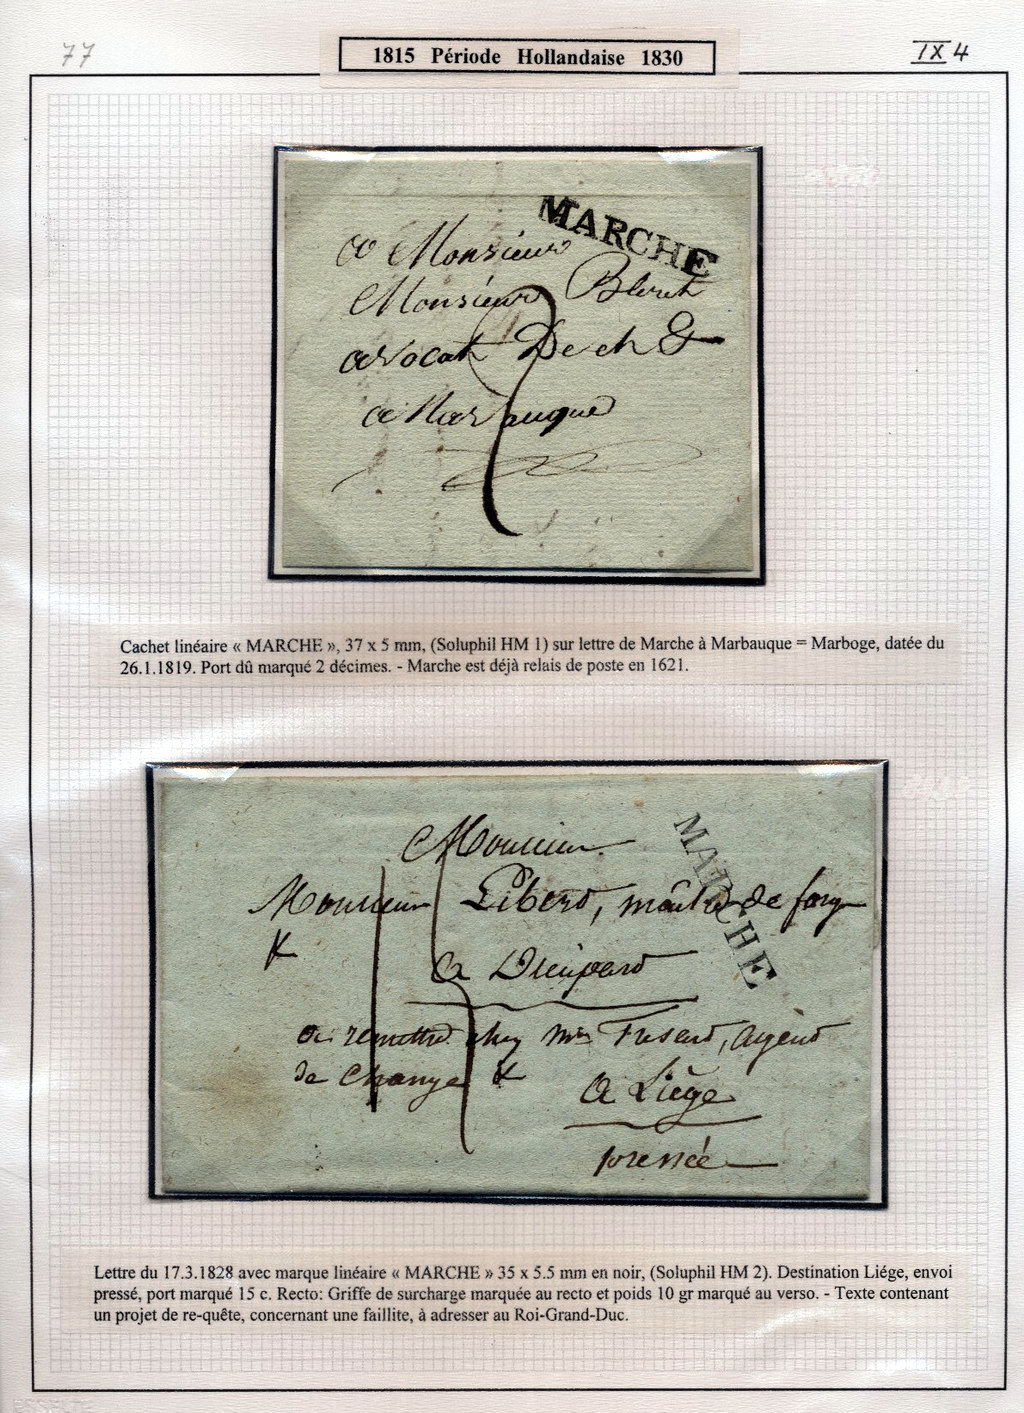 77
1815 Période Hollandaise 1830
IX 4
MARCHE
a Monsieur
Monsieur Bleret
avocat De ch &
a Marbauque
2
Cachet linéaire « MARCHE », 37 x 5 mm, (Soluphil HM 1) sur lettre de Marche à Marbauque = Marboge, datée du
26.1.1819. Port dû marqué 2 décimes. - Marche est déjà relais de poste en 1621.
MARCHE
Monsieur
Monsieur Pibero, maître de forge
a
15
a remettre chez Mr , agent
de Change
a Liège
pressée
Lettre du 17.3.1828 avec marque linéaire « MARCHE » 35 x 5.5 mm en noir, (Soluphil HM 2). Destination Liége, envoi
pressé, port marqué 15 c. Recto: Griffe de surcharge marquée au recto et poids 10 gr marqué au verso. - Texte contenant
un projet de re-quête, concernant une faillite, à adresser au Roi-Grand-Duc.